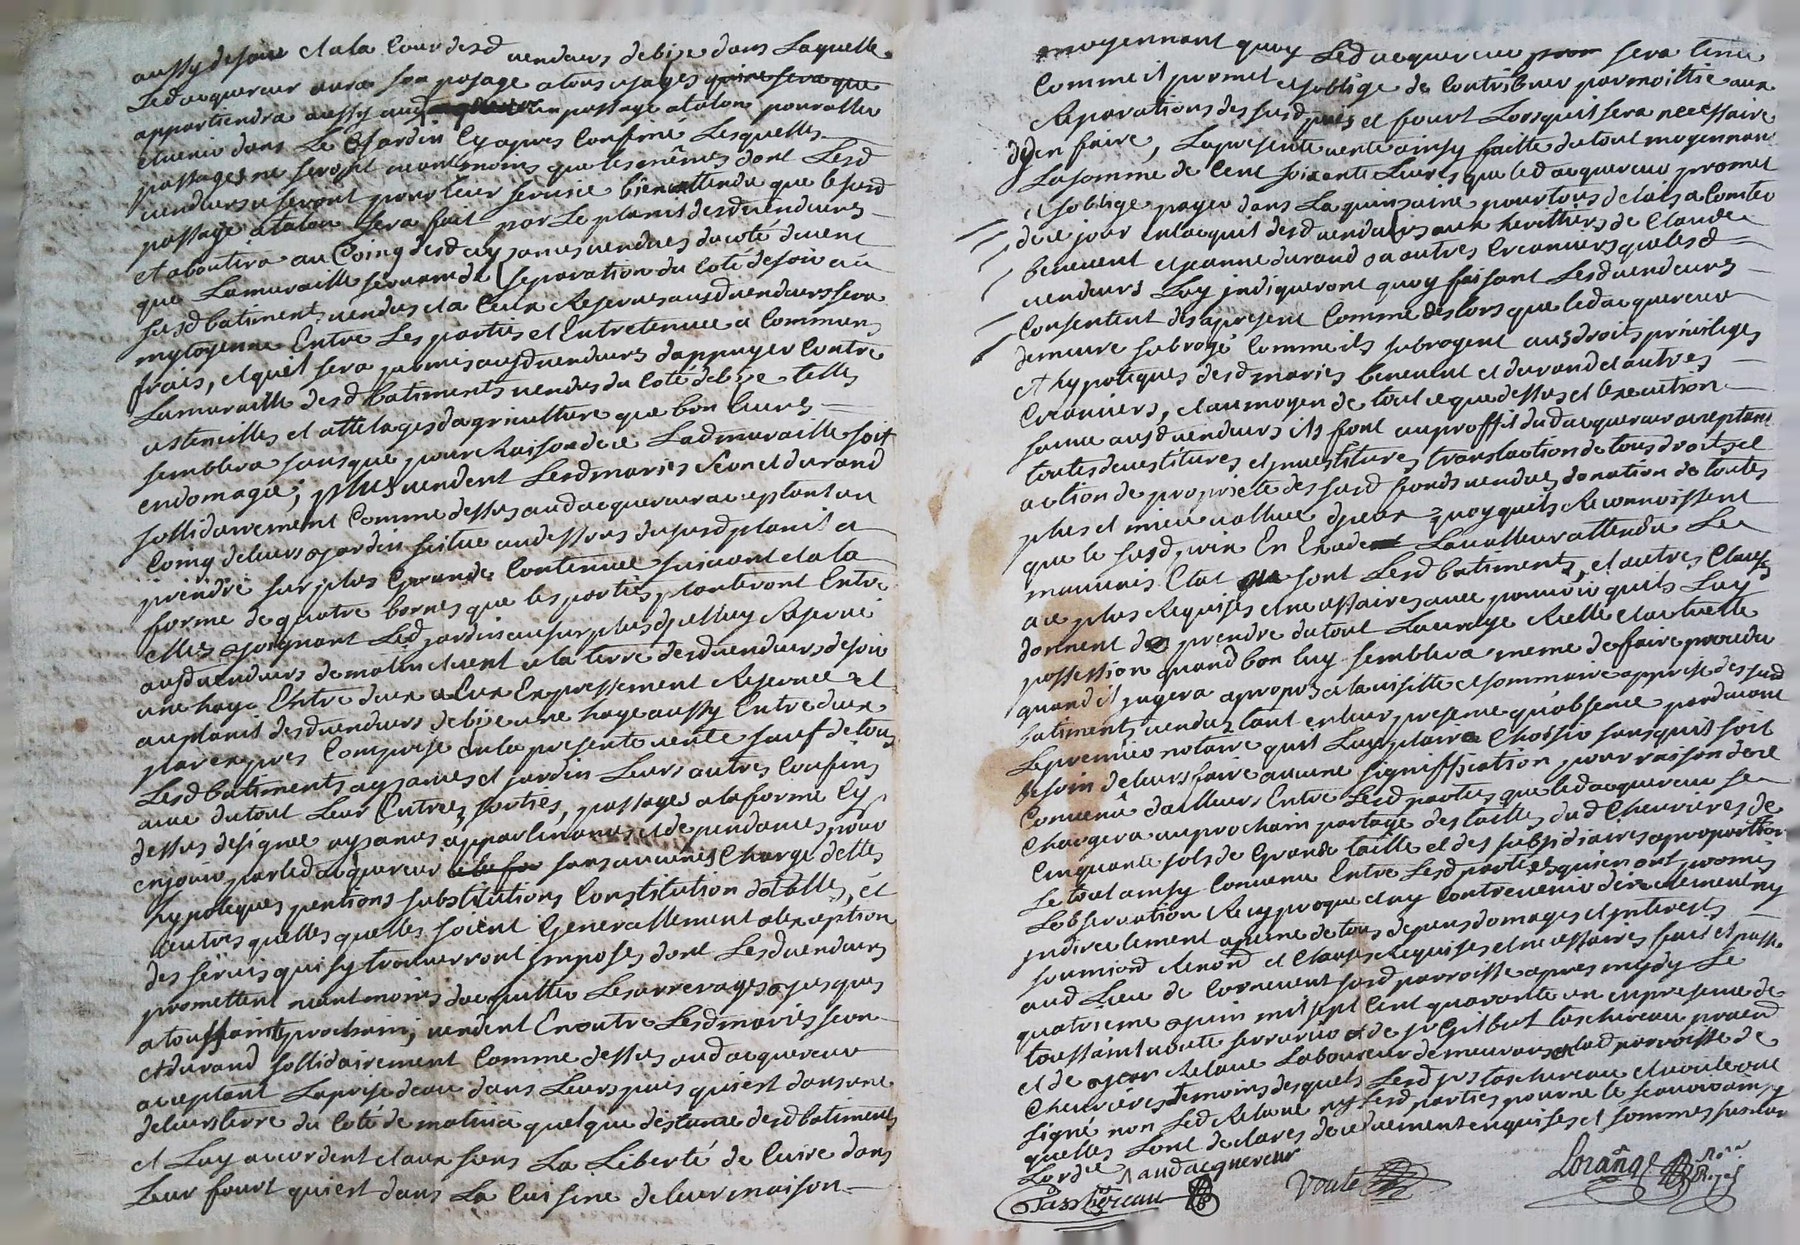 aussy de soir et a la Cour desd vendeurs de bize dans Laquelle
Led acquereur aura son pasage a tous usages
appartiendra aussy aud un passage a talon pour aller
et venir dans Le Jardin Cy apres Confiné Lesquelles
passages ne seront neantmoins que les mêmes dont Lesd
vendeurs se servent pour leur service bien attendu que le susd
passage a talon sera fait par Le planit desd vendeurs
et aboutira au Coing desd aysances vendues du coté du vent
que La muraille servant de separation du Coté de soir au
susd batiments vendus et a Ceux Reservés ausd vendeurs sera
mytoyenne Entre Les parties et Entretenue a Communs
frais, et quil sera permis ausd vendeurs d'appuyer Contre
La muraille desd batiments vendus du Coté de bize telles
ustencilles et attelages dagriculture que bon leurs
semblera sans que pour Raison de ce Lad muraille soit
endomagée; plus vendent Lesd mariés Seon et durand
sollidairement Comme dessus aud acquereur aceptant un
Coing de leurs Jardin situé au dessous du susd planit a
prendre sur plus Grande Contenue suivant et a la
forme de quatre bornes que les parties planteront Entre
elles Joignant Led jardin au surplus dyelluy Reservé
ausd vendeurs de matin et vent a la terre desd vendeurs de soir
une haye Entre deux a Eux Expressement Reservée et
au planit desd vendeurs de bize une haye aussy Entre deux
par expres Comprise En la presente vente sauf de tous
Lesd batiments aysances et jardin Leurs autres Confins
avec du tout Leur Entrées sorties, passages a la forme Cy
dessus designée aysances appartenances et dependances pour
en jouir par led acquereur sans aucunes Charge dettes
hypoteques pentions substitutions Constitution dotalles, et
autres quelles quelles soient Generallement a lexception
des servis qui sy trouverront jmposés dont Lesd vendeurs
promettent neantmoins dacquitter Les arrerages jusques
a toussaint prochain; vendent En outre Lesd mariés seon
et durand sollidairement Comme dessus aud acquereur
aceptant La prise deau dans Leurs puis qui est dans une
de leurs terre du Coté de matin a quelque distance desd batiments
et Luy accordent et aux siens La Liberté de Cuire dans
Leur fourt qui est dans La Cuisine de leur maison
moyennant quoy Led acquereur sera tenu
Comme il promet et soblige de Contribuer par moittié aux
Reparations des susd puis et fourt Lors quil sera necessaire
dyen faire, La presente vente ainsy faitte du tout moyennant
La somme de Cent soixante Livres que led acquereur promet
et soblige payer dans La quinsaine pour tous delais a Comter
de ce jour en lacquit desd vendeurs aux heritiers de Claude
benevent et jeanne durand ou autres Creanciers que lesd
vendeurs Luy jndiqueront quoy faisant Lesd vendeurs
Consentent des apresent Comme des lors que led acquereur
demeure subrogé Comme ils subrogent aux droits privileges
et hypoteques desd mariés benevent et durand et autres
Creanciers, et au moyen de tout ce que dessus et lexecution
sauve ausd vendeurs ils font au proffit dud acquereur aceptant
toutes devestitures et jnvestitures translaction de tous droits et
action de proprieté des susd fonds vendus, donation de toutes
plus et mieux vallue diceux quoy quils Reconnoissent
que le susd prix En Exede La valleur attendu Le
mauvais Etat que sont Lesd batiments, et autres Clauses
au plus Requises et necessaires avec pouvoir quils Luy
donnent de prendre du tout La vraye Reelle et actuelle
possession quand bon luy semblera meme de faire proceder
quand il jugera apropos a la visitte et sommaire apprise des susd
batiments vendus tant en leur presence quabsence pardevant
Le premier notaire quil Luy plaira Choisir sans quil soit
besoin de leurs faire aucune signiffication pour raison de ce
Convenû dailleurs Entre Lesd parties que led acquereur se
Chargera au prochain partage des tailles dud Chevrieres de
Cinquante sols de Grande taille et des subsidiaires a proportion
Le tout ainsy Convenu Entre Lesd parties qui en ont promis
Lobservation Reciproque et ny Contrevenir directement ny
jndirectement a peine de tous depens domages et jnterests
soumions Renon et Clauses Requises et necessaires fait et passé
aud Lieu de Cornevent susd parroisse apres mydy Le
quatrieme Juin mil sept Cent quarante un en presence de
toussaint voute serrurier et de sr Gilbert taschereau
et de Jean Relave Laboureur demeurans en lad parroisse de
Chevrieres temoins desquels Lesd srs taschereau et voute ont
signé non Led Relave ny lesd parties pour ne le scavoir ainsy
quelles Lont declarés de ce duement enquises et sommées suivant
Lord ce aud acquereur
Lorange no.re Royal
Taschereau
Voute